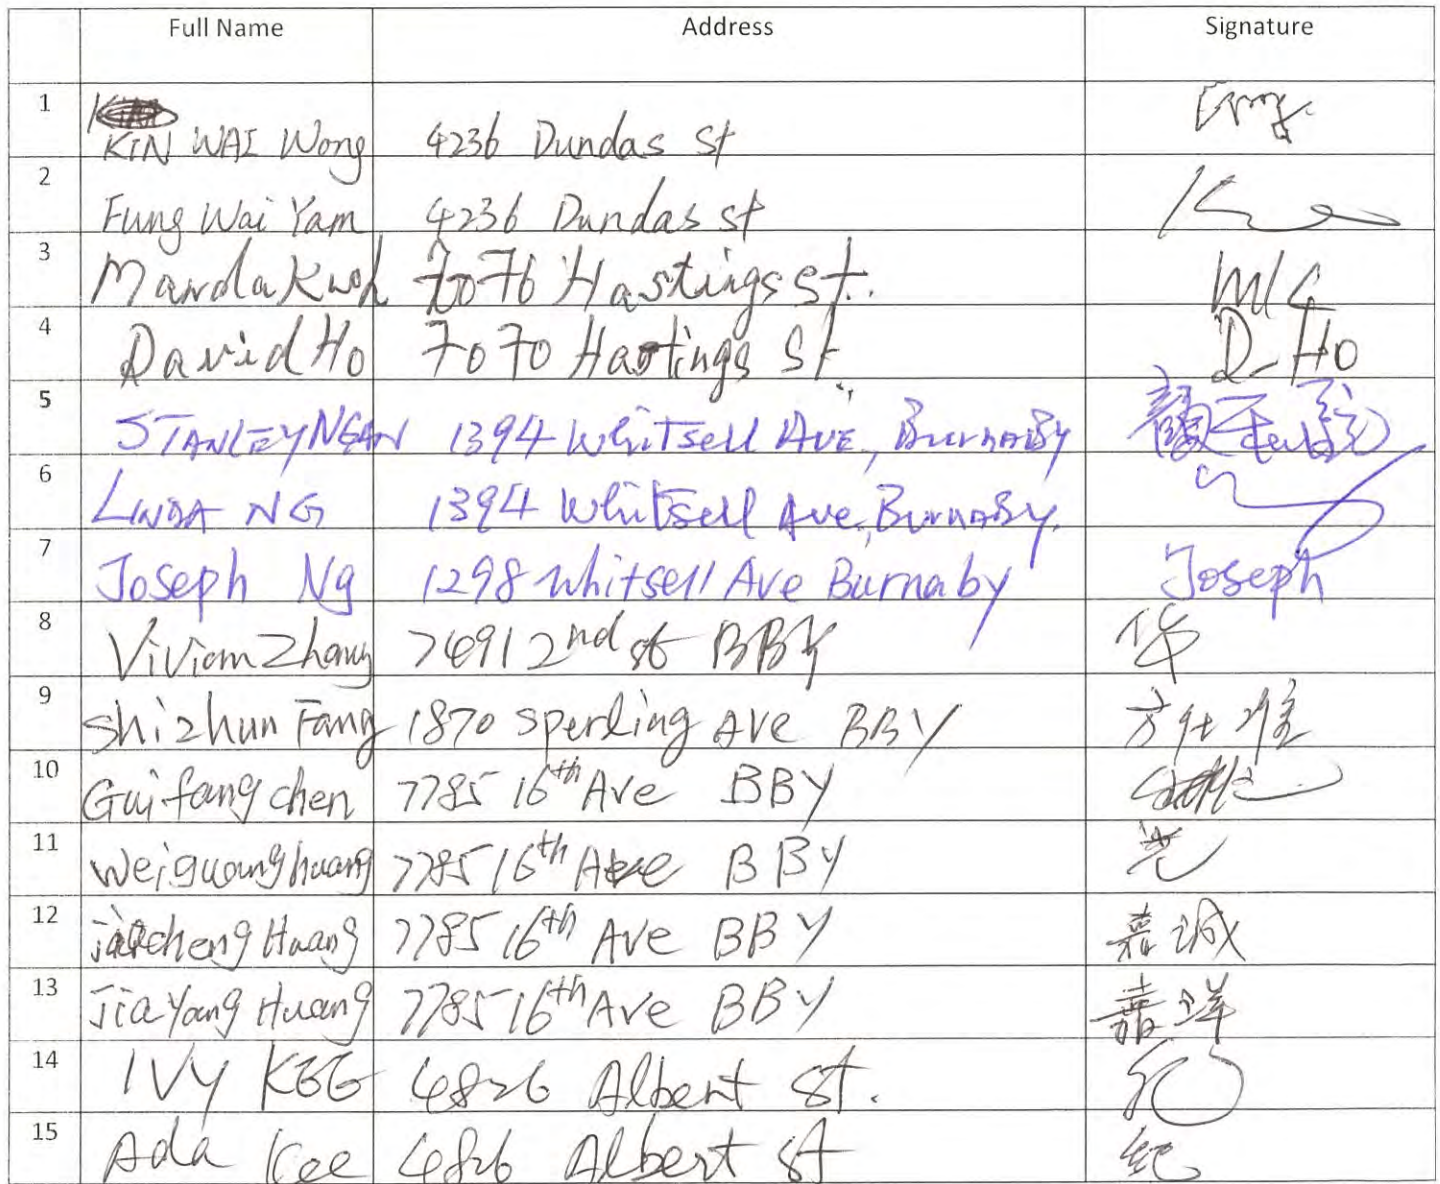 Full Name Address Signature
1 KIN WAI Wong 4236 Dundas St
2 Fung Wai Yam 4236 Dundas St
3 Manda Kwok 7076 Hastings St. MK
4 David Ho 7070 Hastings St. D-Ho
5 STANLEY NGAN 1394 Whitsell AVE, BurnABy
6 LINDA NG 1394 Whitsell Ave, BurnABy.
7 Joseph Ng 1298 Whitsell Ave Burnaby Joseph
8 Vivian Zhang 7491 2nd st BBY 华
9 Shizhun Fang 1870 Sperling AVe BBY 方仕准
10 Guifang chen 7785 16th Ave BBY
11 Weiguang huang 7785 16th Ave BBY 光
12 jiacheng Huang 7785 16th Ave BBY 嘉诚
13 Jia Yang Huang 7785 16th Ave BBY 嘉洋
14 IVY KEE 4826 Albert St. 纪
15 Ada Kee 4826 Albert St 纪